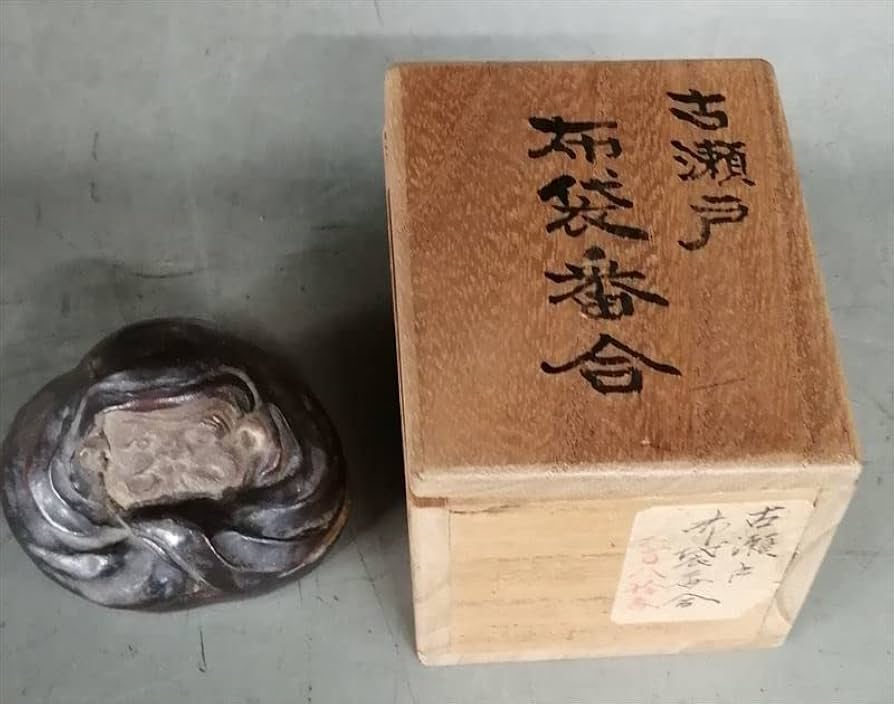 古瀬戸
布袋番合
古瀬戸
布袋番合